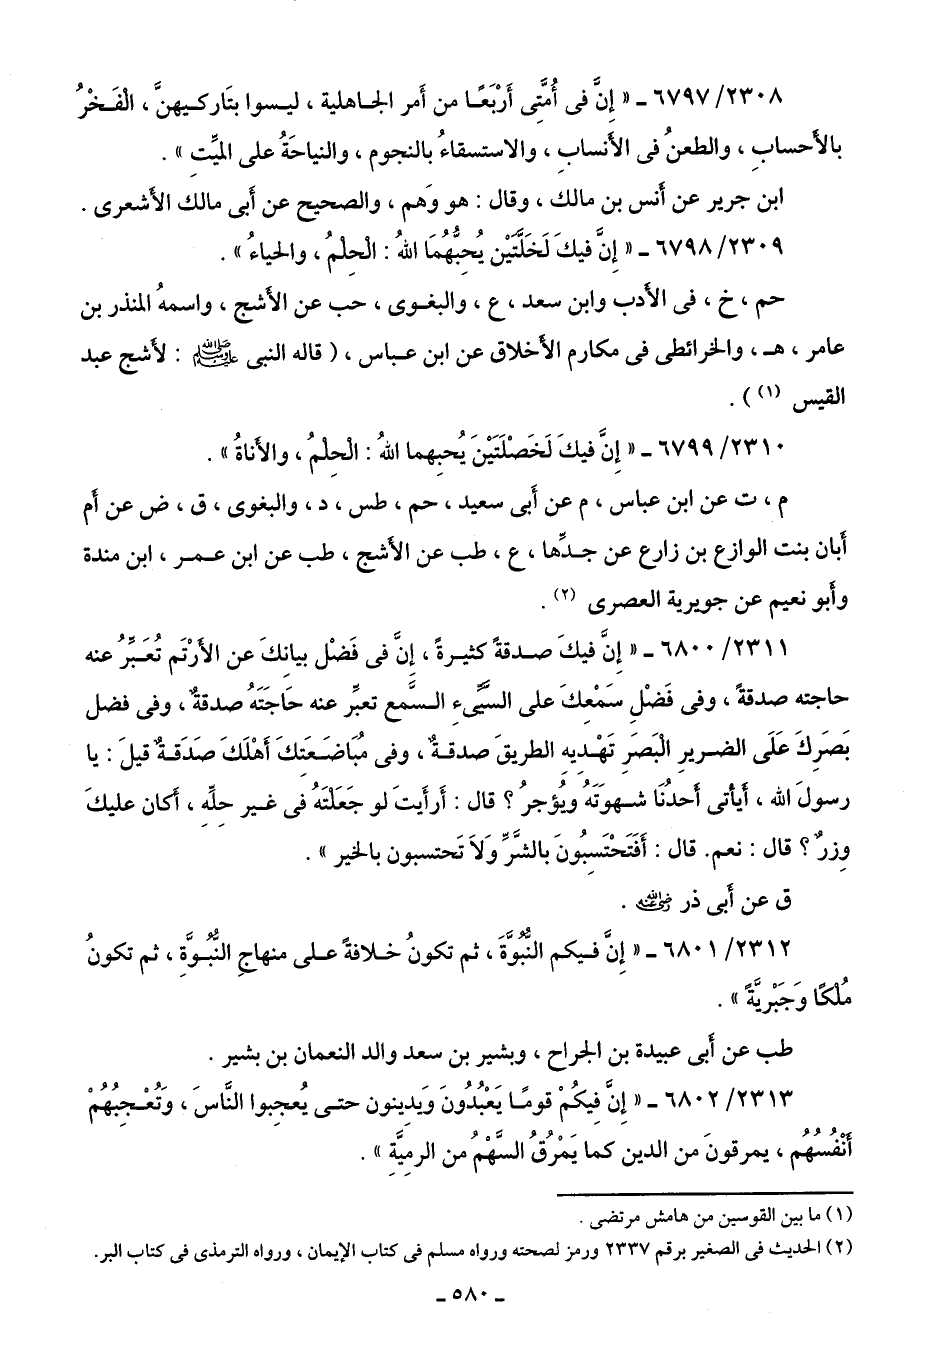 ٦٧٩٧/٢٣٠٨ ـ « إِنَّ فى أُمَّتِى أَرْبَعًا من أمر الجاهلية ، ليسوا بتَاركيهنَّ ، الْفَخْرُ
بالأَحسابِ ، والطعنُ فى الأَنسابِ ، والاستسقاءُ بالنجوم ، والنياحَةُ على الميِّتِ » .
ابن جرير عن أنس بن مالك ، وقال : هو وَهم ، والصحيح عن أبى مالك الأشعرى .
٦٧٩٨/٢٣٠٩ ـ « إِنَّ فيكَ لَخَلَّتَيْن يُحبُّهُمَا اللهُ : الْحلْمُ ، والحياءُ » .
حم ، خ ، فى الأدب وابن سعد ، ع ، والبغوى ، حب عن الأشج ، واسمهُ المنذر بن
عامر ، هـ ، والخرائطى فى مكارم الأخلاق عن ابن عباس ، ( قاله النبى ﷺ : لأشج عبد
القيس (١) ) .
٦٧٩٩/٢٣١٠ ـ « إِنَّ فيكَ لَخَصْلَتَيْنَ يُحبهما اللهُ : الْحلْمُ ، والأناةُ » .
م ، ت عن ابن عباس ، م عن أبى سعيد ، حم ، طس ، د ، والبغوى ، ق ، ض عن أم
أبان بنت الوازع بن زارع عن جدِّها ، ع ، طب عن الأشج ، طب عن ابن عمر ، ابن مندة
وأبو نعيم عن جويرية العصرى (٢) .
٦٨٠٠/٢٣١١ ـ « إِنَّ فيكَ صدقةً كثيرةً ، إِنَّ فى فَضْل بيانكَ عن الأَرْتَم تُعَبِّرُ عنه
حاجته صدقةً ، وفى فَضْلِ سَمْعكَ على السَّيِّىءِ السَّمع تعبِّر عنه حَاجَتَهُ صدقةٌ ، وفى فضل
بَصَرِكَ عَلَى الضرير الْبَصَر تَهْديه الطريقَ صدقةٌ ، وفى مُبَاضَعَتكَ أَهْلَكَ صَدَقَةٌ قيلَ : يا
رسولَ الله ، أَيأتى أحدُنَا شهوَتَهُ ويُؤجرُ ؟ قال : أرأيتَ لو جَعَلْتَهُ فى غير حلِّه ، أكان عليكَ
وزرٌ ؟ قال : نعم. قال : أَفَتَحْتَسِبُونَ بالشَّرِّ وَلاَ تَحتسبون بالخير » .
ق عن أبى ذر رضي الله عنه .
٦٨٠١/٢٣١٢ ـ « إِنَّ فيكم النُّبُوَّةَ ، ثم تكونُ خلافةً على منهاجِ النُّبُوَّةِ ، ثم تكونُ
مُلْكًا وَجَبْرِيَّةً » .
طب عن أبى عبيدة بن الجراح ، وبشير بن سعد والد النعمان بن بشير .
٦٨٠٢/٢٣١٣ ـ « إِنَّ فيكُمْ قومًا يَعْبُدُونَ وَيَدينون حتى يُعجبوا النَّاسَ ، وَتُعْجبُهُمْ
أَنْفُسُهُم ، يمرقونَ من الدين كما يَمْرُقُ السَّهْمُ من الرميَّةِ » .
(١) ما بين القوسين من هامش مرتضى .
(٢) الحديث فى الصغير برقم ٢٣٣٧ ورمز لصحته ورواه مسلم فى كتاب الإيمان ، ورواه الترمذى فى كتاب البر.
ـ ٥٨٠ ـ